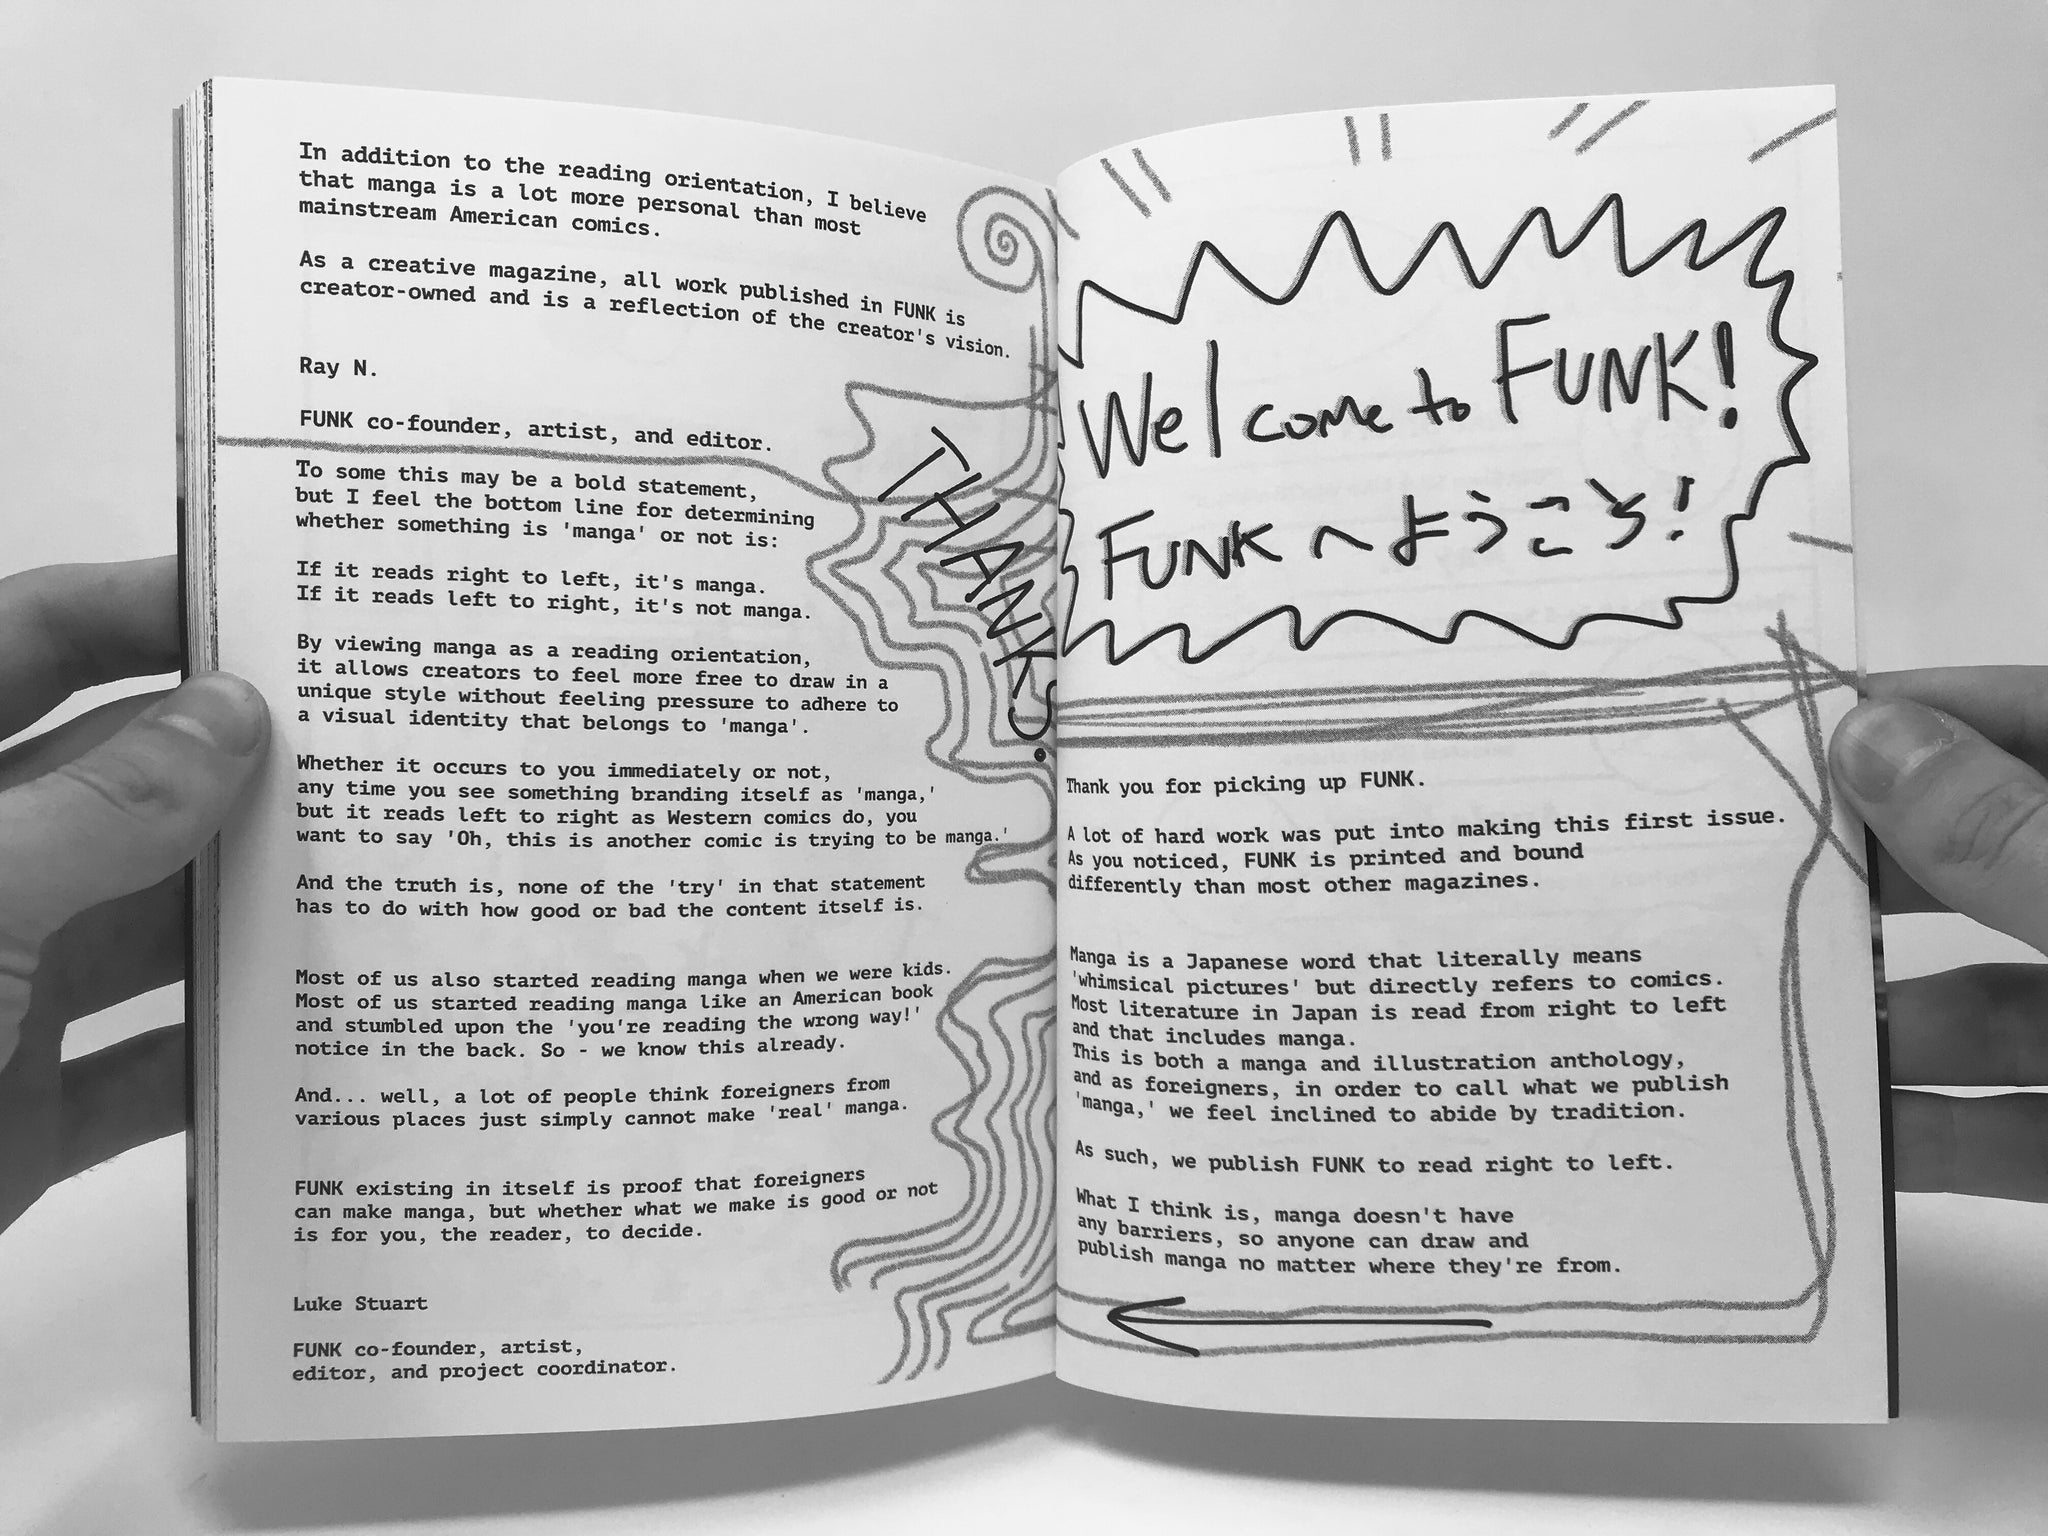 Welcome to FUNK!
FUNKへようこそ!
Thank you for picking up FUNK.
A lot of hard work was put into making this first issue.
As you noticed, FUNK is printed and bound
differently than most other magazines.
Manga is a Japanese word that literally means
'whimsical pictures' but directly refers to comics.
Most literature in Japan is read from right to left
and that includes manga.
This is both a manga and illustration anthology,
and as foreigners, in order to call what we publish
'manga,' we feel inclined to abide by tradition.
As such, we publish FUNK to read right to left.
What I think is, manga doesn't have
any barriers, so anyone can draw and
publish manga no matter where they're from.
In addition to the reading orientation, I believe
that manga is a lot more personal than most
mainstream American comics.
As a creative magazine, all work published in FUNK is
creator-owned and is a reflection of the creator's vision.
Ray N.
FUNK co-founder, artist, and editor.
THANKS.
To some this may be a bold statement,
but I feel the bottom line for determining
whether something is 'manga' or not is:
If it reads right to left, it's manga.
If it reads left to right, it's not manga.
By viewing manga as a reading orientation,
it allows creators to feel more free to draw in a
unique style without feeling pressure to adhere to
a visual identity that belongs to 'manga'.
Whether it occurs to you immediately or not,
any time you see something branding itself as 'manga,'
but it reads left to right as Western comics do, you
want to say 'Oh, this is another comic is trying to be manga.'
And the truth is, none of the 'try' in that statement
has to do with how good or bad the content itself is.
Most of us also started reading manga when we were kids.
Most of us started reading manga like an American book
and stumbled upon the 'you're reading the wrong way!'
notice in the back. So - we know this already.
And... well, a lot of people think foreigners from
various places just simply cannot make 'real' manga.
FUNK existing in itself is proof that foreigners
can make manga, but whether what we make is good or not
is for you, the reader, to decide.
Luke Stuart
FUNK co-founder, artist,
editor, and project coordinator.